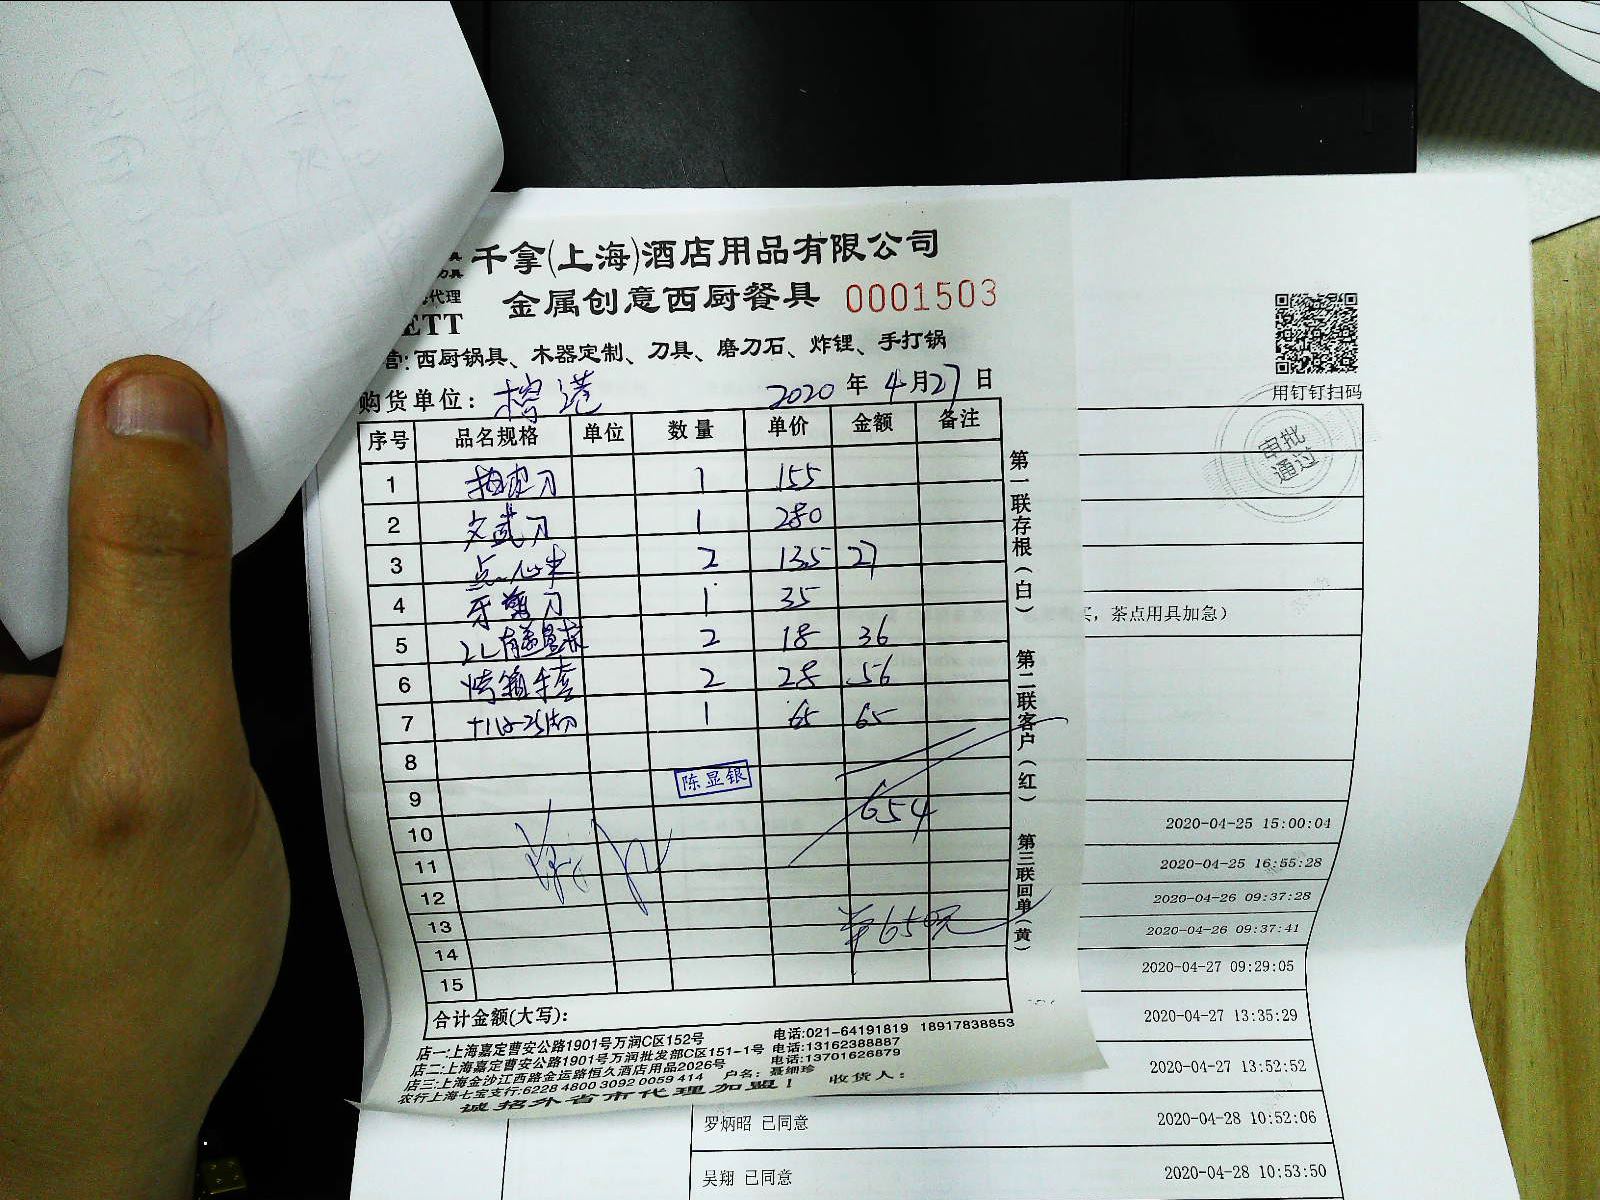 千拿(上海)酒店用品有限公司
金属创意西厨餐具 0001503
代理
ETT
营: 西厨锅具、木器定制、刀具、磨刀石、炸锂、手打锅
购货单位: 2020 年 4 月 27 日
序号 品名规格 单位 数量 单价 金额 备注
1 拍皮刀 1 155
2 文武刀 1 280
3 2 13.5 27
4 牙剪刀 1 35
5 2L有盖量杯 2 18 36
6 烤箱手套 2 28 56
7 1 65 65
8
陈显银
9 654
10
11
12
13
14
15
合计金额(大写):
第一联存根(白)
第二联客户(红)
第三联回单(黄)
店一:上海嘉定曹安公路1901号万润C区152号 电话:021-64191819 18917838853
店二:上海嘉定曹安公路1901号万润批发部C区151-1号 电话:13162388887
店三:上海金沙江西路金运路恒久酒店用品2026号 电话:13701626879
农行上海七宝支行:6228 4800 3092 0059 414 户名: 聂细珍 收货人:
诚招外省市代理加盟!
用钉钉扫码
审批
通过
买, 茶点用具加急)
2020-04-25 15:00:04
2020-04-25 16:55:28
2020-04-26 09:37:28
2020-04-26 09:37:41
2020-04-27 09:29:05
2020-04-27 13:35:29
2020-04-27 13:52:52
罗炳昭 已同意 2020-04-28 10:52:06
吴翔 已同意 2020-04-28 10:53:50